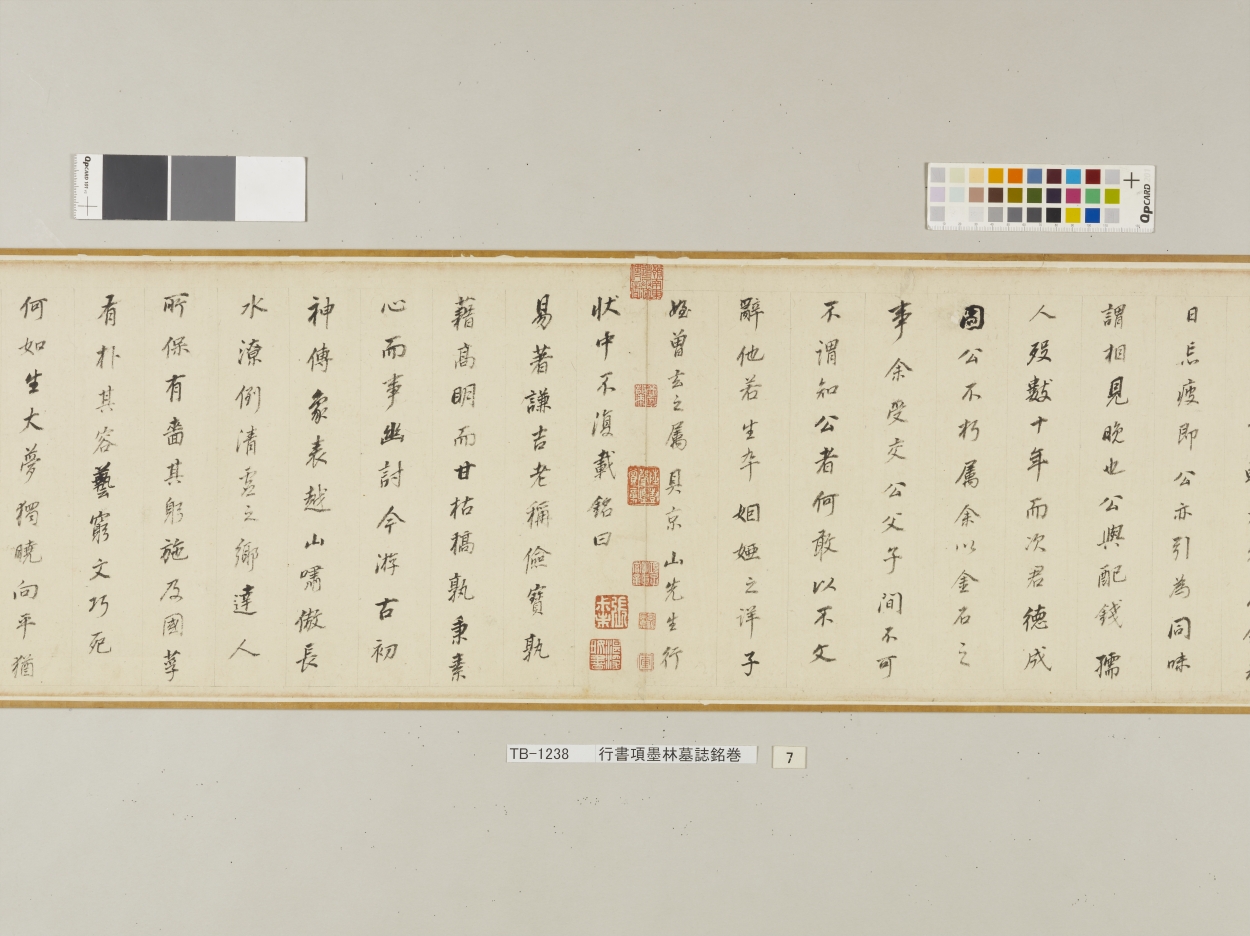 日忘疲即公亦引為同味
謂相見晚也公與配錢孺
人歿數十年而次君德成
圖公不朽属余以金石之
事余受交公父子間不可
不謂知公者何敢以不文
辭他若生卒姻婭之详子
姓曾玄之属具京山先生行
状中不復載銘曰
易著謙吉老稱儉寶孰
藉高明而甘枯槁孰秉素
心而事幽討今游古初
神傳象表越山嘯傲長
水潦倒清虚之鄉達人
所保有嗇其躬施及國莩
有朴其容藝窮文巧死
何如生大夢獨曉向平猶
TB-1238 行書項墨林墓誌銘巻
7
QPCARD 101
QPCARD